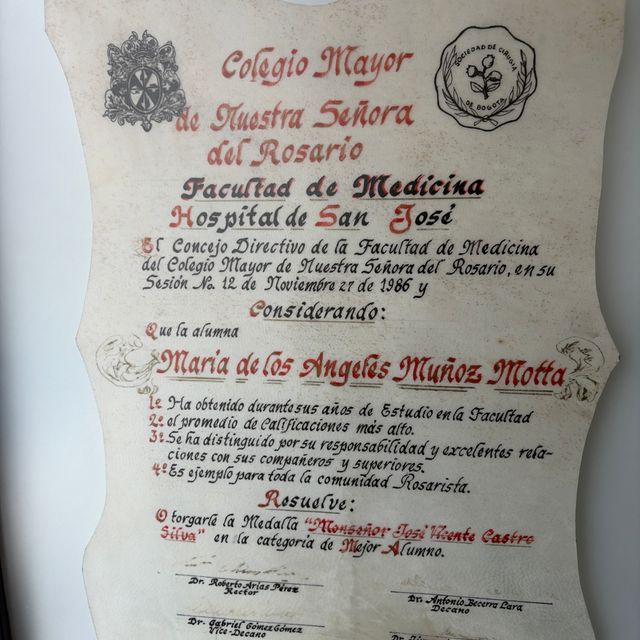 Colegio Mayor
de Nuestra Señora
del Rosario
SOCIEDAD DE CIRUGIA
DE BOGOTA
Facultad de Medicina
Hospital de San José
El Concejo Directivo de la Facultad de Medicina
del Colegio Mayor de Nuestra Señora del Rosario, en su
Sesión No. 12 de Noviembre 27 de 1986 y
Considerando:
Que la alumna
María de los Angeles Muñoz Motta
1º Ha obtenido durante sus años de Estudio en la Facultad
2º el promedio de Calificaciones más alto.
3º Se ha distinguido por su responsabilidad y excelentes rela-
ciones con sus compañeros y superiores.
4º Es ejemplo para toda la comunidad Rosarista.
Resuelve:
Otorgarle la Medalla "Monseñor José Vicente Castro
Silva" en la categoria de Mejor Alumno.
Dr. Roberto Arias Pérez
Rector
Dr. Antonio Becerra Lara
Decano
Dr. Gabriel Gómez Gómez
Vice-Decano